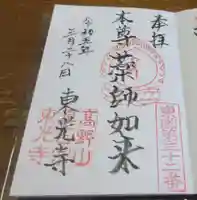 奉拝
東国第三十二番
本尊薬師如来
令和五年
三月二十八日
東光寺
高野山
東光寺